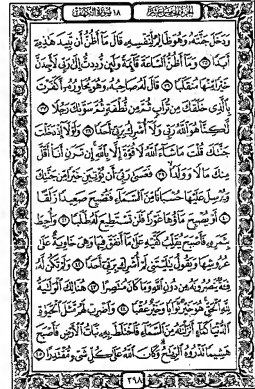 الجزء الخامس عشر ١٨ سورة الكهف
ودخل جنته وهو ظالم لنفسه قال ما أظن أن تبيد هذه
أبدا ٣٥ وما أظن الساعة قائمة ولئن رددت إلى ربي لأجدن
خيرا منها منقلبا ٣٦ قال له صاحبه وهو يحاوره أكفرت
بالذي خلقك من تراب ثم من نطفة ثم سواك رجلا ٣٧
لكنا هو الله ربي ولا أشرك بربي أحدا ٣٨ ولولا إذ دخلت
جنتك قلت ما شاء الله لا قوة إلا بالله إن ترن أنا أقل
منك مالا وولدا ٣٩ فعسى ربي أن يؤتين خيرا من جنتك
ويرسل عليها حسبانا من السماء فتصبح صعيدا زلقا
٤٠ أو يصبح ماؤها غورا فلن تستطيع له طلبا ٤١ وأحيط
بثمره فأصبح يقلب كفيه على ما أنفق فيها وهي خاوية على
عروشها ويقول يا ليتني لم أشرك بربي أحدا ٤٢ ولم تكن له
فئة ينصرونه من دون الله وما كان منتصرا ٤٣ هنالك الولاية
لله الحق هو خير ثوابا وخير عقبا ٤٤ واضرب لهم مثل الحياة
الدنيا كماء أنزلناه من السماء فاختلط به نبات الأرض فأصبح
هشيما تذروه الرياح وكان الله على كل شيء مقتدرا ٤٥
٢٩٨